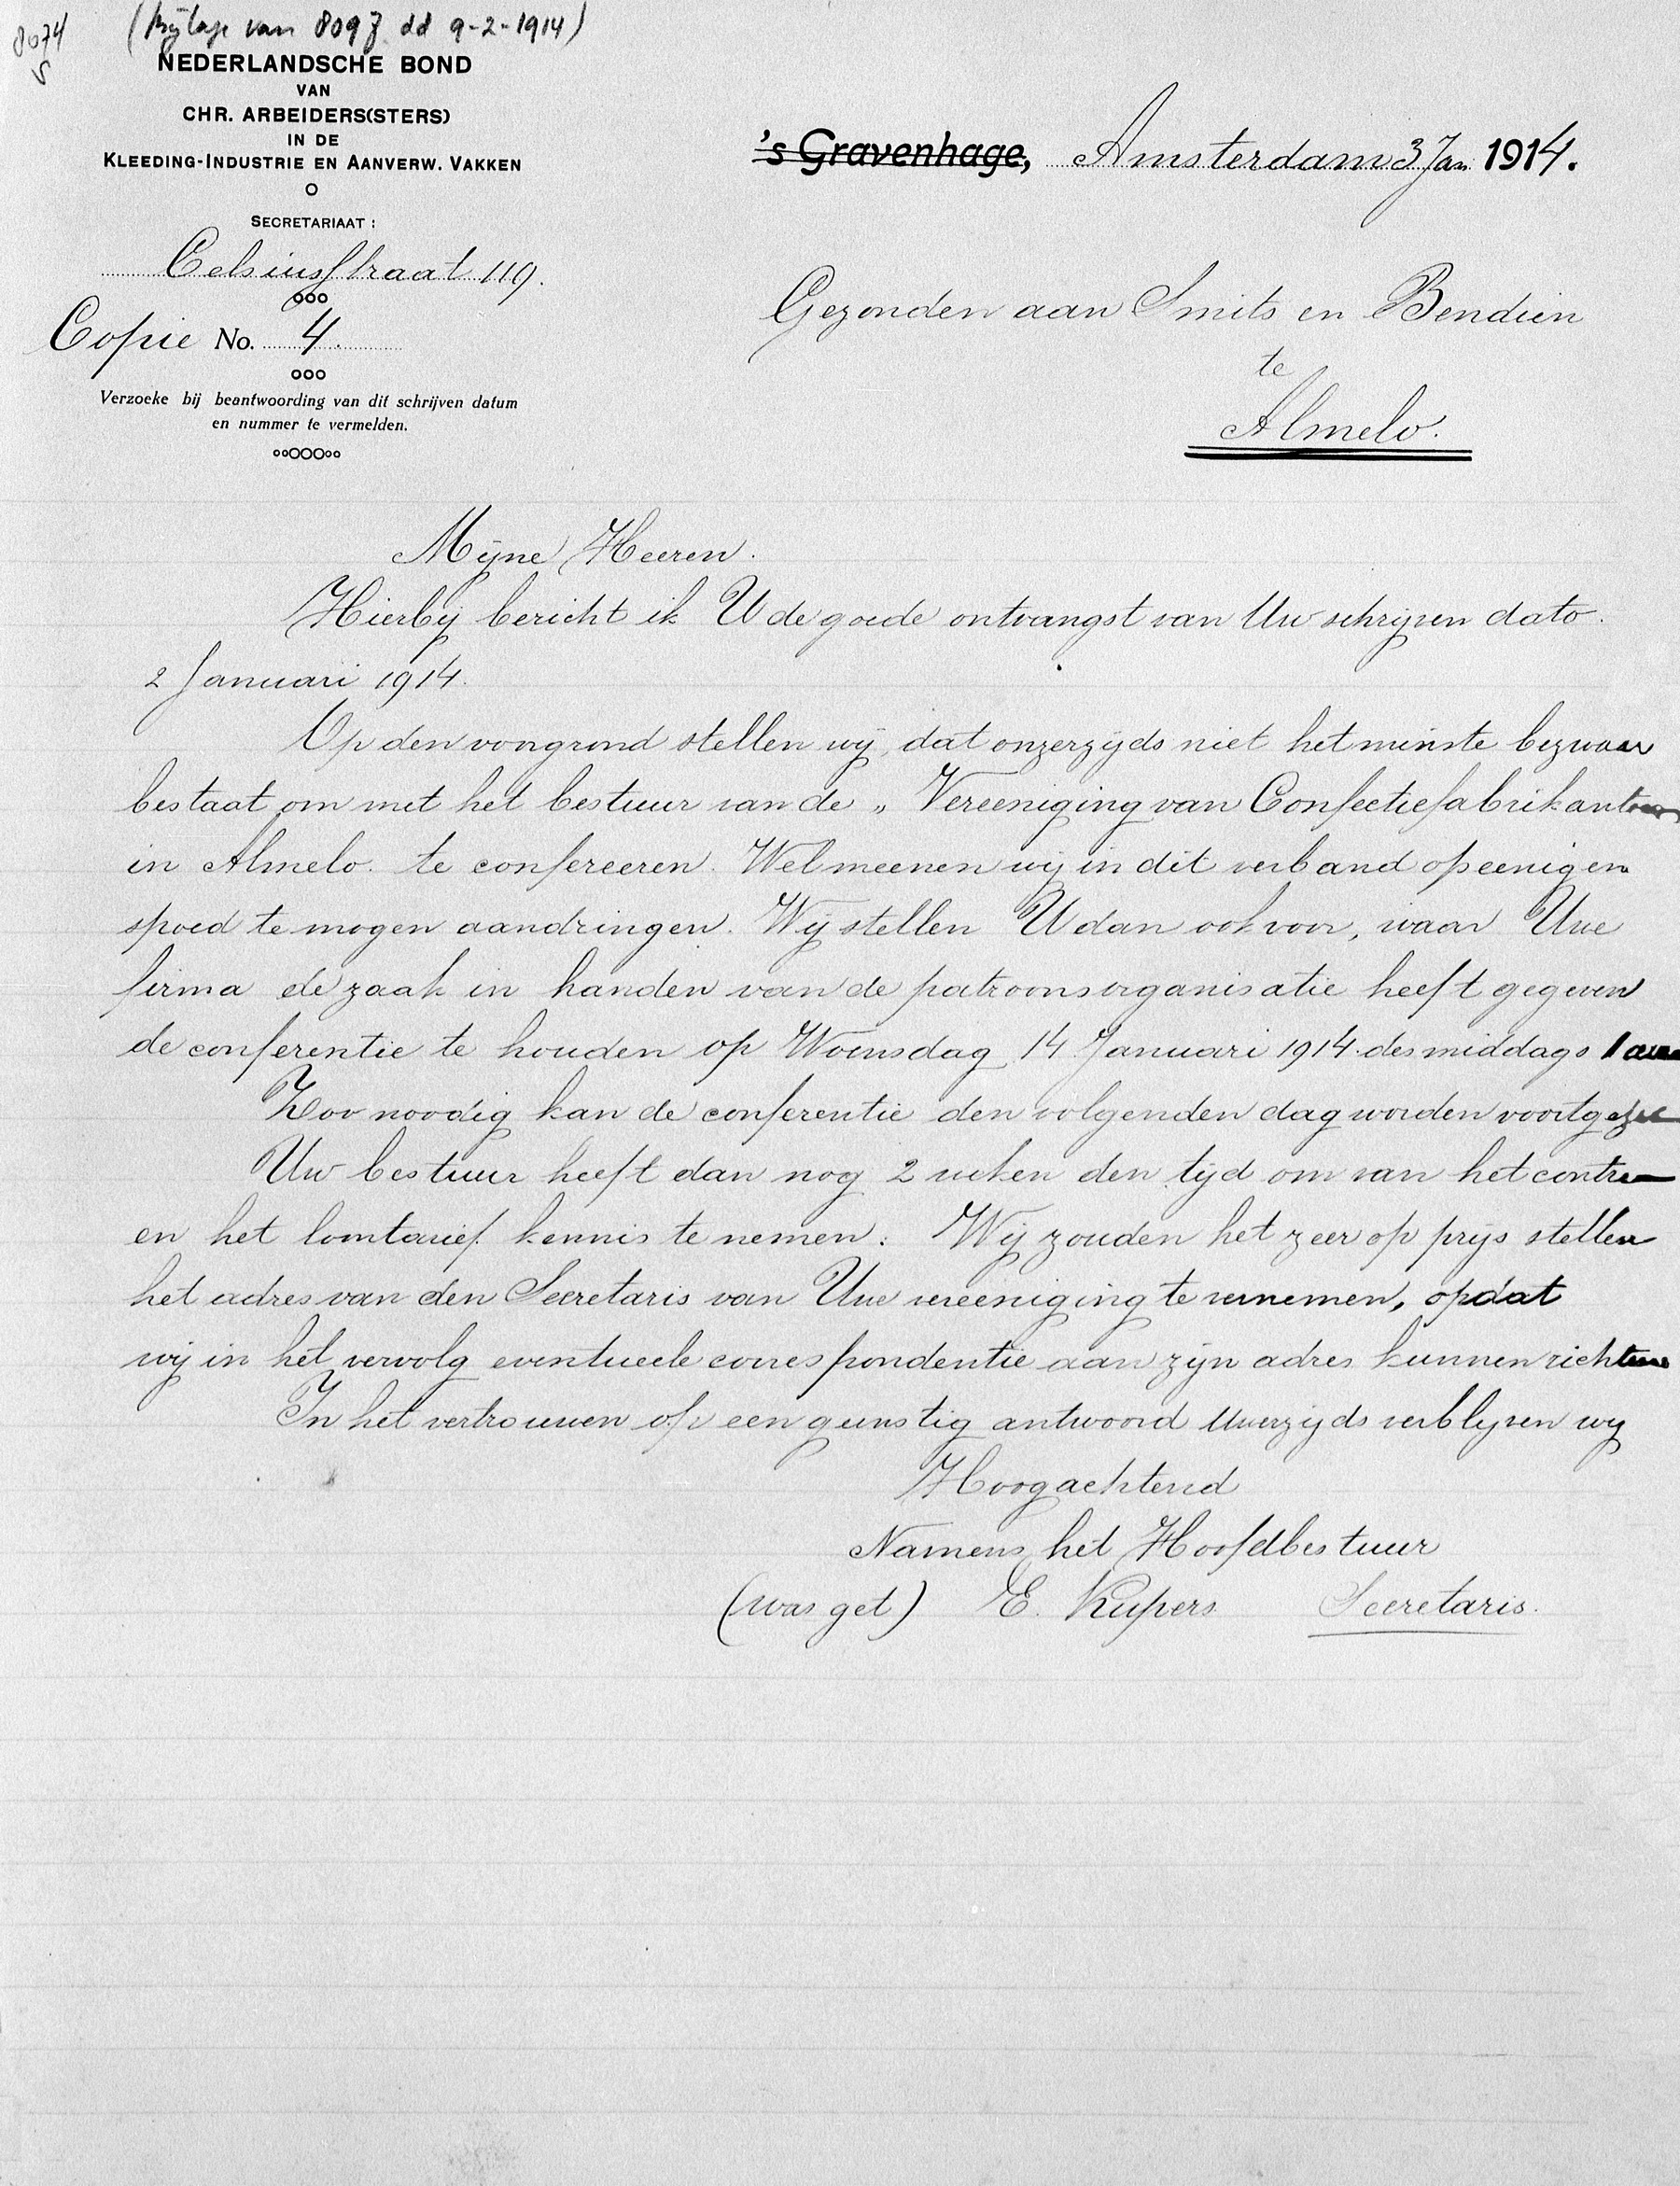 8074
(Bijlage van 8097 dd 9-2-1914)
5
NEDERLANDSCHE BOND
VAN
CHR. ARBEIDERS(STERS)
IN DE
KLEEDING-INDUSTRIE EN AANVERW. VAKKEN
SECRETARIAAT:
Celsiusstraat 119.
Copie No. 4.
Verzoeke bij beantwoording van dit schrijven datum
en nummer te vermelden.
's Gravenhage, Amsterdam 3 Jan 1914.
Gezonden aan Smits en Bendien
te
Almelo.
Mijne Heeren.
Hierbij bericht ik U de goede ontvangst van Uw schrijven dato.
2 Januari 1914.
Op den voorgrond stellen wij, dat onzerzijds niet het minste bezwaar
bestaat om met het bestuur van de „Vereeniging van Confectiefabrikanten
in Almelo. te confereeren. Wel meenen wij in dit verband op eenigen
spoed te mogen aandringen. Wij stellen U dan ook voor, waar Uwe
firma de zaak in handen van de patroonsorganisatie heeft gegeven
de conferentie te houden op Woensdag 14 Januari 1914. des middags 1
Zoo noodig kan de conferentie den volgenden dag worden voortgezet
Uw bestuur heeft dan nog 2 weken den tijd om van het
en het loontarief. kennis te nemen. Wij zouden het zeer op prijs stellen
het adres van den Secretaris van Uwe vereeniging te vernemen, opdat
wij in het vervolg eventueele correspondentie aan zijn adres kunnen richten
In het vertrouwen op een gunstig antwoord Uwerzijds verblijven wij
Hoogachtend
Namens het Hoofdbestuur
(was get) E. Kupers Secretaris.